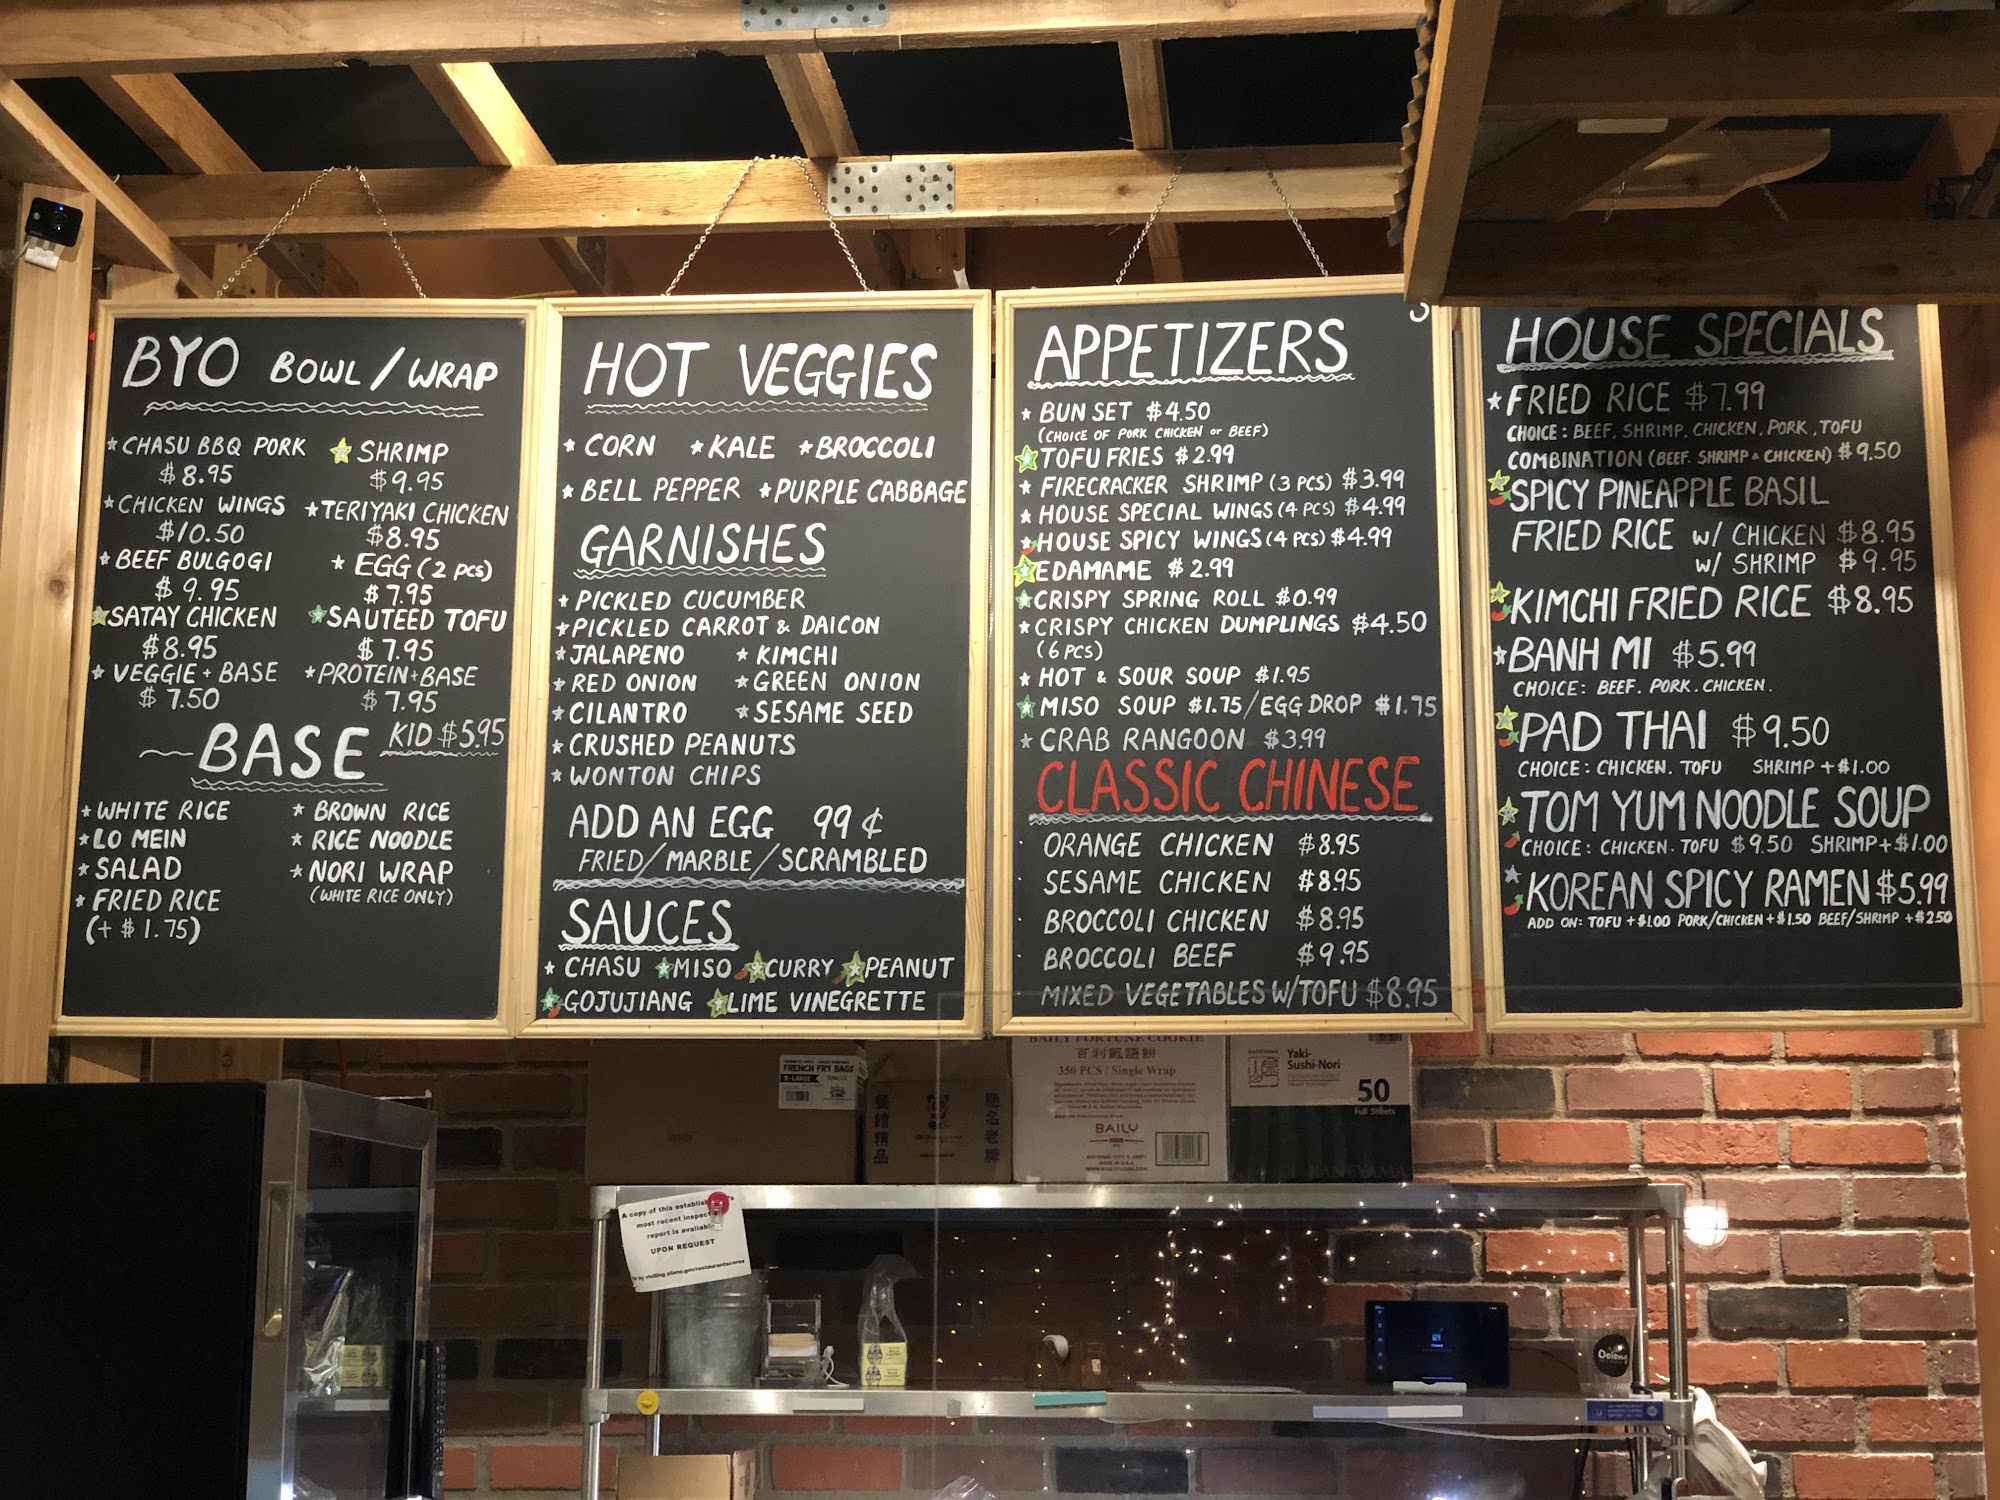 BYO BOWL / WRAP
CHASU BBQ PORK
$8.95
SHRIMP
$9.95
CHICKEN WINGS
$10.50
TERIYAKI CHICKEN
$8.95
BEEF BULGOGI
$9.95
EGG (2 pcs)
$7.95
SATAY CHICKEN
$8.95
SAUTEED TOFU
$7.95
VEGGIE + BASE
$7.50
PROTEIN+BASE
$7.95
BASE
KID $5.95
WHITE RICE
LO MEIN
SALAD
FRIED RICE
(+ $1.75)
BROWN RICE
RICE NOODLE
NORI WRAP
(WHITE RICE ONLY)
HOT VEGGIES
CORN KALE BROCCOLI
BELL PEPPER PURPLE CABBAGE
GARNISHES
PICKLED CUCUMBER
PICKLED CARROT & DAICON
JALAPENO KIMCHI
RED ONION GREEN ONION
CILANTRO SESAME SEED
CRUSHED PEANUTS
WONTON CHIPS
ADD AN EGG 99¢
FRIED/MARBLE/SCRAMBLED
SAUCES
CHASU MISO CURRY PEANUT
GOJUJIANG LIME VINEGRETTE
APPETIZERS
BUN SET $4.50
(CHOICE OF PORK CHICKEN or BEEF)
TOFU FRIES $2.99
FIRECRACKER SHRIMP (3 PCS) $3.99
HOUSE SPECIAL WINGS (4 PCS) $4.99
HOUSE SPICY WINGS (4 PCS) $4.99
EDAMAME $2.99
CRISPY SPRING ROLL $0.99
CRISPY CHICKEN DUMPLINGS $4.50
(6 PCS)
HOT & SOUR SOUP $1.95
MISO SOUP $1.75/EGG DROP $1.75
CRAB RANGOON $3.99
CLASSIC CHINESE
ORANGE CHICKEN $8.95
SESAME CHICKEN $8.95
BROCCOLI CHICKEN $8.95
BROCCOLI BEEF $9.95
MIXED VEGETABLES W/TOFU $8.95
HOUSE SPECIALS
FRIED RICE $7.99
CHOICE: BEEF, SHRIMP, CHICKEN, PORK, TOFU
COMBINATION (BEEF. SHRIMP & CHICKEN) $9.50
SPICY PINEAPPLE BASIL
FRIED RICE w/ CHICKEN $8.95
w/ SHRIMP $9.95
KIMCHI FRIED RICE $8.95
BANH MI $5.99
CHOICE: BEEF. PORK. CHICKEN.
PAD THAI $9.50
CHOICE: CHICKEN. TOFU SHRIMP +$1.00
TOM YUM NOODLE SOUP
CHOICE: CHICKEN. TOFU $9.50 SHRIMP+$1.00
KOREAN SPICY RAMEN $5.99
ADD ON: TOFU +$1.00 PORK/CHICKEN +$1.50 BEEF/SHRIMP +$2.50
FRENCH FRY BAGS
X-LARGE
餐館精品
馳名老牌
BAILY FORTUNE COOKIE
百利籤語餅
350 PCS / Single Wrap
BAILY
MADE IN U.S.A.
Yaki-
Sushi-Nori
50
Full Sheets
A copy of this establis
most recent inspec
report is availab
UPON REQUEST
Or by visiting plano.gov/restaurantscores
Oolong